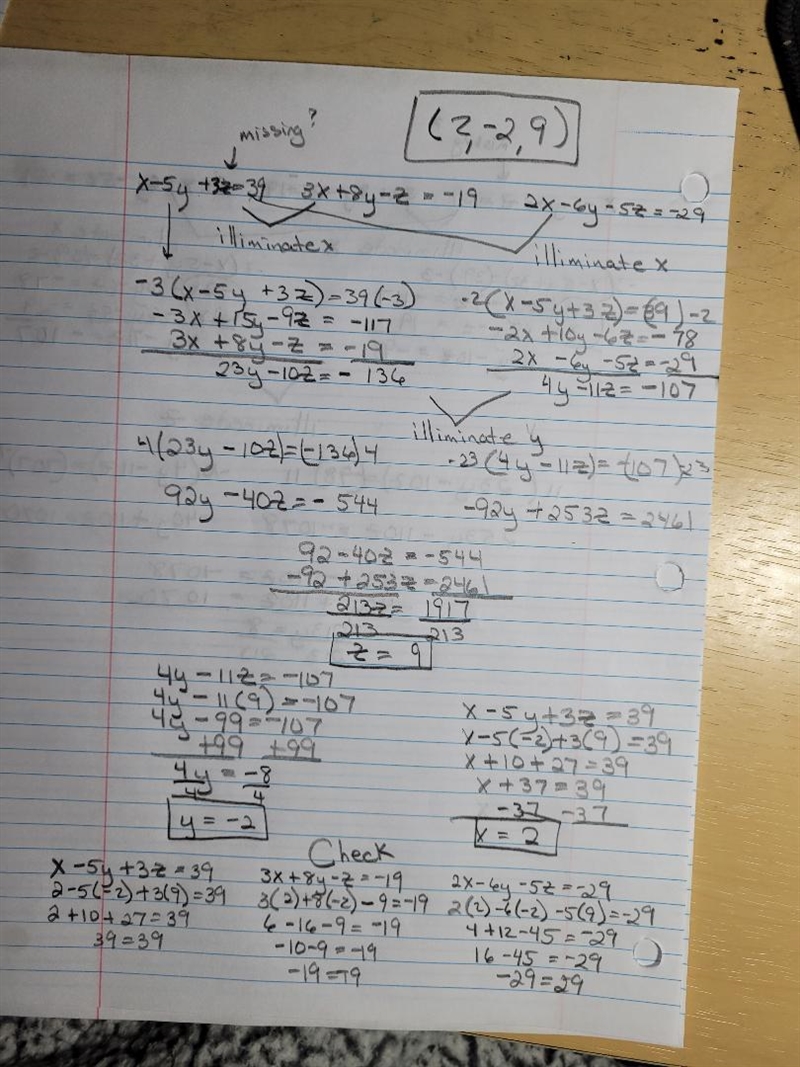 (2, -2, 9)
missing?
x-5y +3z=39   3x+8y-z = -19   2x-6y-5z=-29
illiminate x
illiminate x
-3(x-5y +3z)=39(-3)
-3x + 15y -9z = -117
3x + 8y - z = -19
23y-10z = - 136
-2(x-5y+3z)=(39)-2
-2x+10y-6z=-78
2x -6y -5z=-29
4y -11z = -107
illiminate y
4(23y - 10z)=(-136)4
92y -40z = - 544
-23(4y -11z)=(-107)-23
-92y + 253z = 2461
92 - 40z = -544
-92 + 253z = 2461
213z = 1917
213 213
z = 9
4y - 11z = -107
4y - 11(9) = -107
4y - 99 = -107
+99 +99
4y = -8
4 4
y = -2
x - 5y + 3z = 39
x-5(-2)+3(9)=39
x + 10 + 27 = 39
x + 37 = 39
-37 -37
x = 2
Check
x - 5y + 3z = 39
2-5(-2)+3(9)=39
2+10+27=39
39=39
3x + 8y - z = -19
3(2)+8(-2)-9=-19
6-16-9=-19
-10-9=-19
-19=-19
2x-6y-5z=-29
2(2)-6(-2)-5(9)=-29
4+12-45=-29
16-45=-29
-29=-29